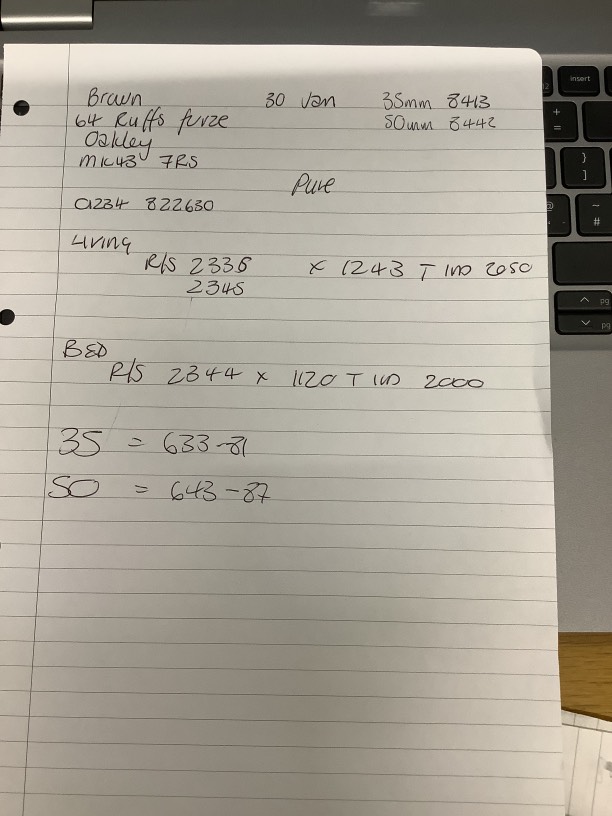 Brown 30 Jan 35mm 8413
64 Ruffs furze 50mm 8442
Oakley
MK43 7RS
Pure
01234 822630
Living
R/S 2335 x 1243 T IND 2050
2345
BED
R/S 2344 x 1120 T IND 2000
35 = 633-81
50 = 643-87
insert
+
=
}
]
@
~
#
pg
pg